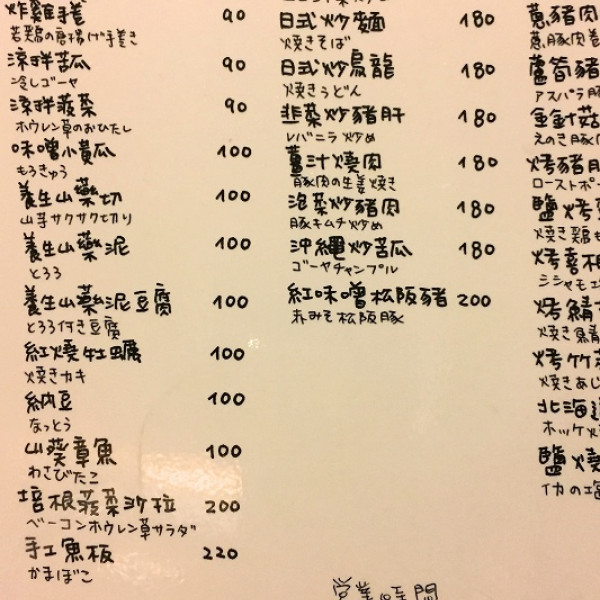 炸雞手卷 90
若鶏の唐揚げ手巻き
涼拌苦瓜 90
冷しゴーヤ
涼拌菠菜 90
ホウレン草のおひたし
味噌小黄瓜 100
もろきゅう
養生山藥切 100
山芋サクサク切り
養生山藥泥 100
とろろ
養生山藥泥豆腐 100
とろろ付き豆腐
紅燒牡蠣 100
焼きカキ
納豆 100
なっとう
山葵章魚 100
わさびたこ
培根菠菜沙拉 200
ベーコンホウレン草サラダ
手工魚板 220
かまぼこ
日式炒麵 180
焼きそば
日式炒烏龍 180
焼きうどん
韭菜炒豬肝 180
レバニラ炒め
薑汁燒肉 180
豚肉の生姜焼き
泡菜炒豬肉 180
豚キムチ炒め
沖縄炒苦瓜 180
ゴーヤチャンプル
紅味噌松阪豬 200
赤みそ松阪豚
営業時間
蔥豬肉
蔥豚肉巻
蘆筍豬
アスパラ豚
金針菇
えのき豚
烤豬肋
ローストポー
鹽烤
焼き鶏も
烤喜相
シシャモ
烤鯖
焼き鯖
烤竹莢
焼きあじ
北海道
ホッケ
鹽燒
イカの